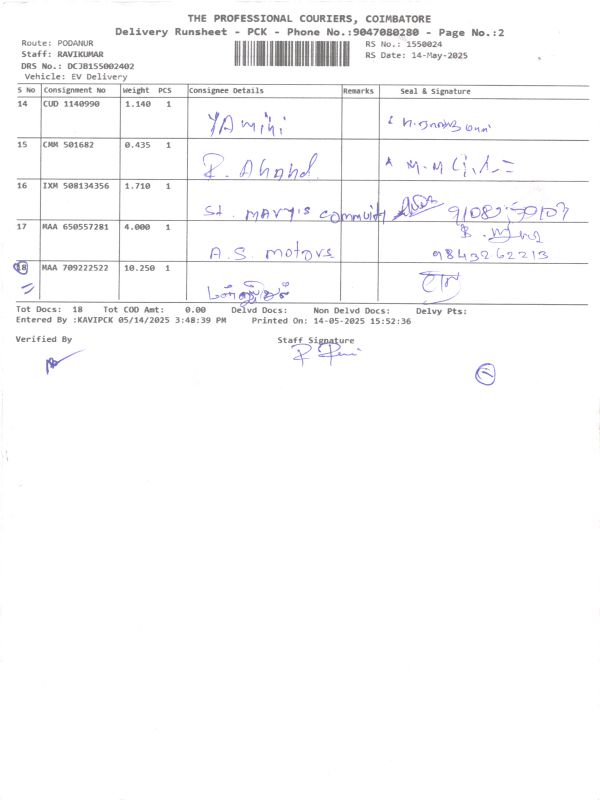 THE PROFESSIONAL COURIERS, COIMBATORE
Delivery Runsheet - PCK - Phone No.:9047080280 - Page No.:2
Route: PODANUR RS No.: 1550024
Staff: RAVIKUMAR RS Date: 14-May-2025
DRS No.: DCJB155002402
Vehicle: EV Delivery
S No Consignment No Weight PCS Consignee Details Remarks Seal & Signature
14 CUD 1140990 1.140 1
YAmini
15 CMM 501682 0.435 1
R. Anand
16 IXM 508134356 1.710 1
St. mary's commuity
17 MAA 650557281 4.000 1
A.S. motors 9843262213
18 MAA 709222522 10.250 1
Tot Docs: 18 Tot COD Amt: 0.00 Delvd Docs: Non Delvd Docs: Delvy Pts:
Entered By :KAVIPCK 05/14/2025 3:48:39 PM Printed On: 14-05-2025 15:52:36
Verified By Staff Signature